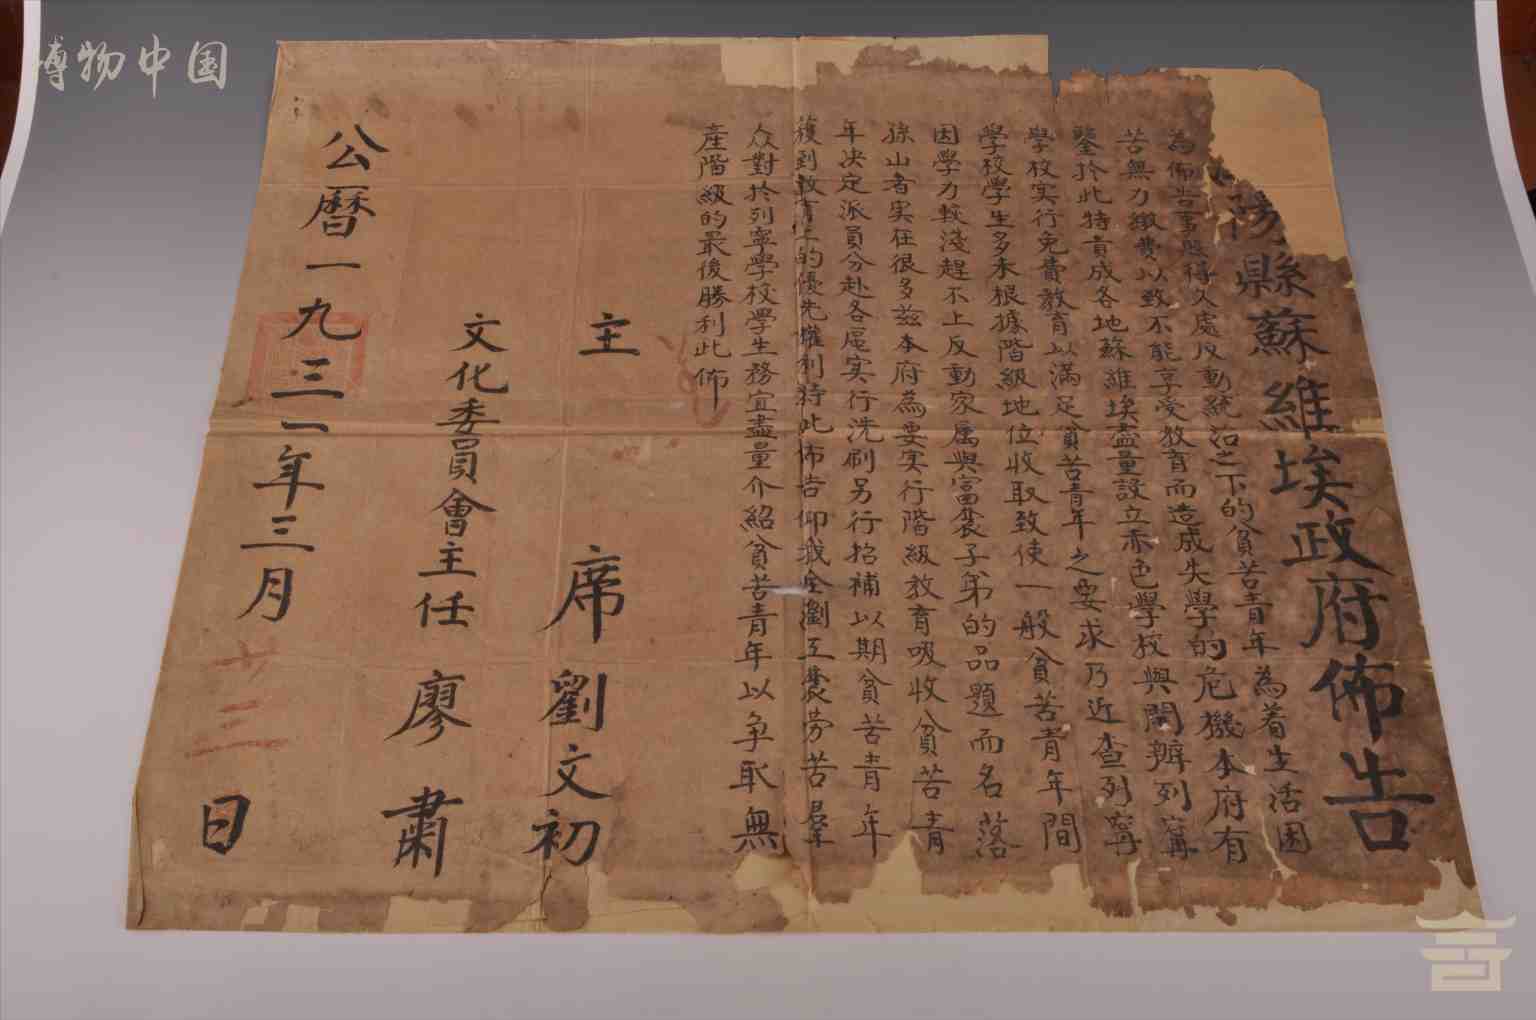 博物中国
陽縣蘇維埃政府佈告
為佈告事照得久處反動統治之下的貧苦青年為着生活困
苦無力繳費以致不能享受教育而造成失學的危機本府有
鑒於此特責成各地蘇維埃盡量設立赤色學校與開辦列寧
學校实行免費教育以滿足貧苦青年之要求乃近查列寧
學校學生多未根據階級地位收取致使一般貧苦青年間
因學力較淺趕不上反動家属與富裘子弟的品題而名落
孫山者实在很多兹本府為要实行階級教育吸收貧苦青
年决定派員分赴各處实行洗刷另行招補以期貧苦青年
獲到教育上的優先權利特此佈告仰我全瀏工農劳苦羣
众對扵列寧學校學生務宜盡量介紹貧苦青年以争取無
產階級的最後勝利此佈
主席劉文初
文化委員會主任廖肅
公曆一九三一年三月廿三日